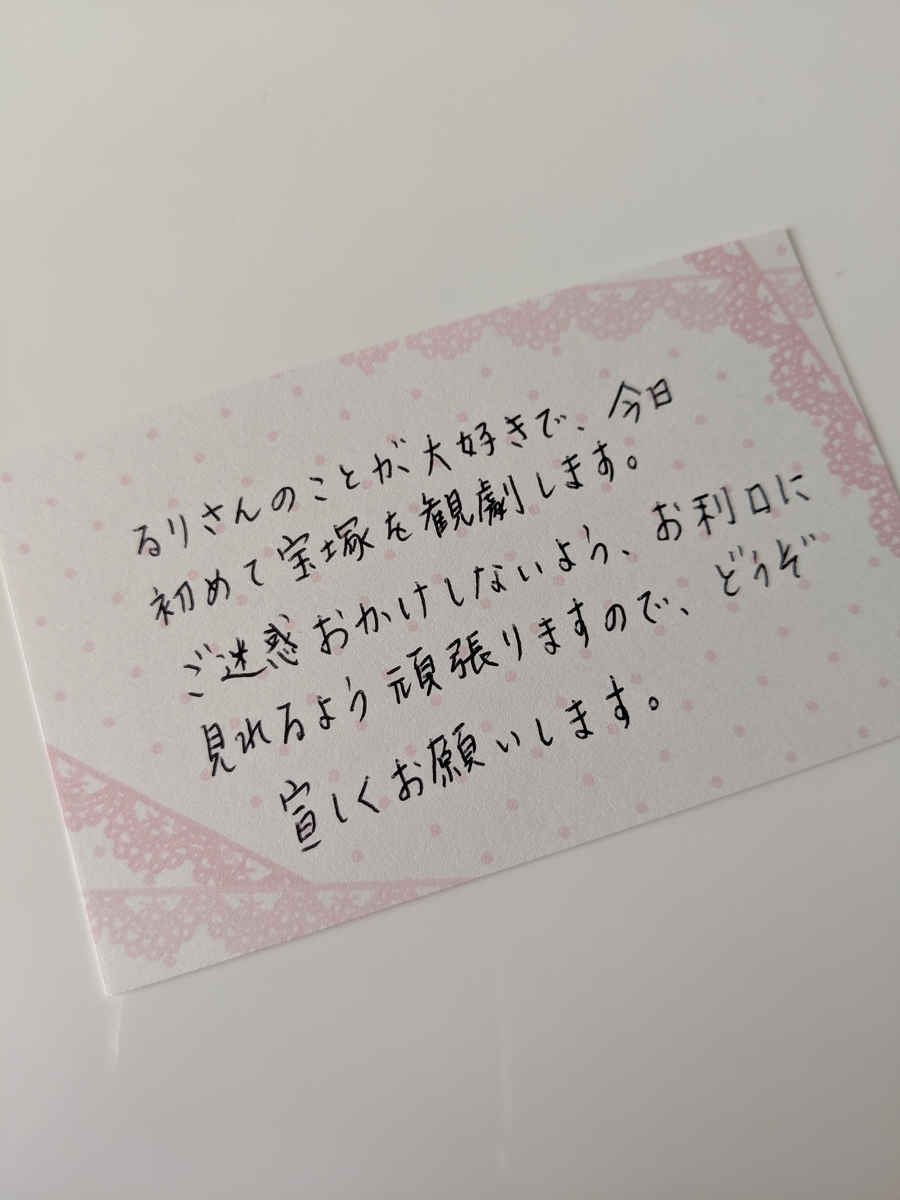 るりさんのことが大好きで、今日
初めて宝塚を観劇します。
ご迷惑おかけしないよう、お利口に
見れるよう頑張りますので、どうぞ
宜しくお願いします。